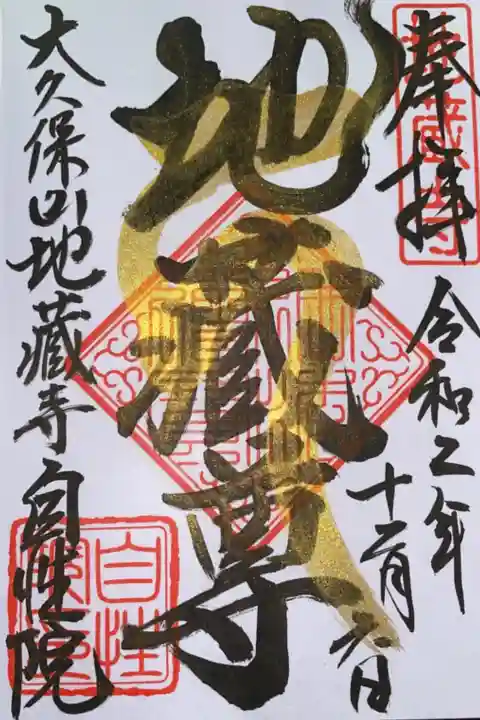 奉拝
令和二年
十二月六日
地蔵尊
大久保山地蔵寺自性院